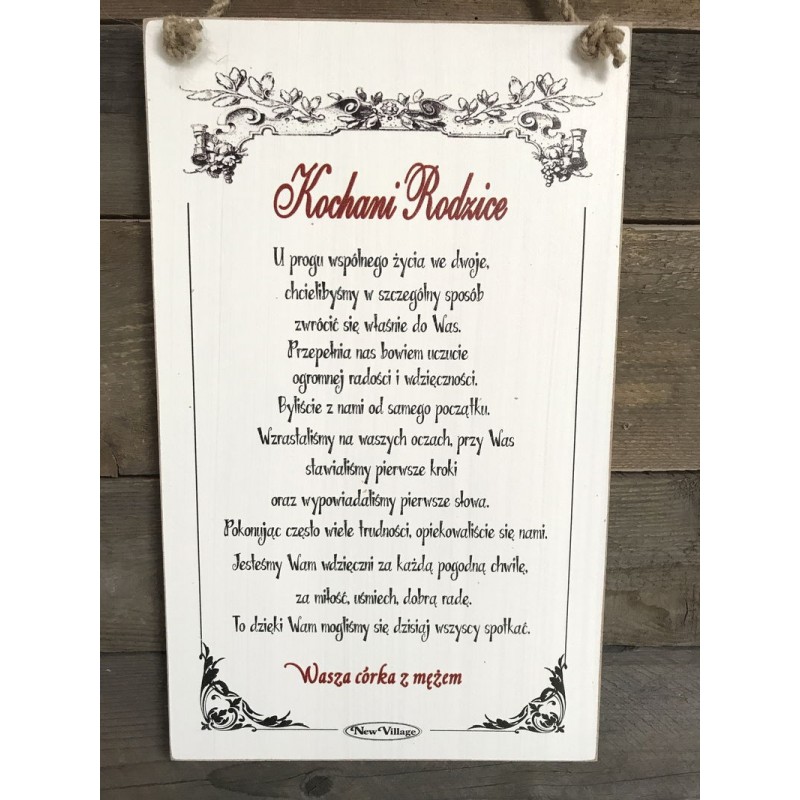 Kochani Rodzice
U progu wspólnego życia we dwoje,
chcielibyśmy w szczególny sposób
zwrócić się właśnie do Was.
Przepełnia nas bowiem uczucie
ogromnej radości i wdzięczności.
Byliście z nami od samego początku.
Wzrastaliśmy na waszych oczach, przy Was
stawialiśmy pierwsze kroki
oraz wypowiadaliśmy pierwsze słowa.
Pokonując często wiele trudności, opiekowaliście się nami.
Jesteśmy Wam wdzięczni za każdą pogodną chwilę,
za miłość, uśmiech, dobrą radę.
To dzięki Wam mogliśmy się dzisiaj wszyscy spotkać.
Wasza córka z mężem
New Village